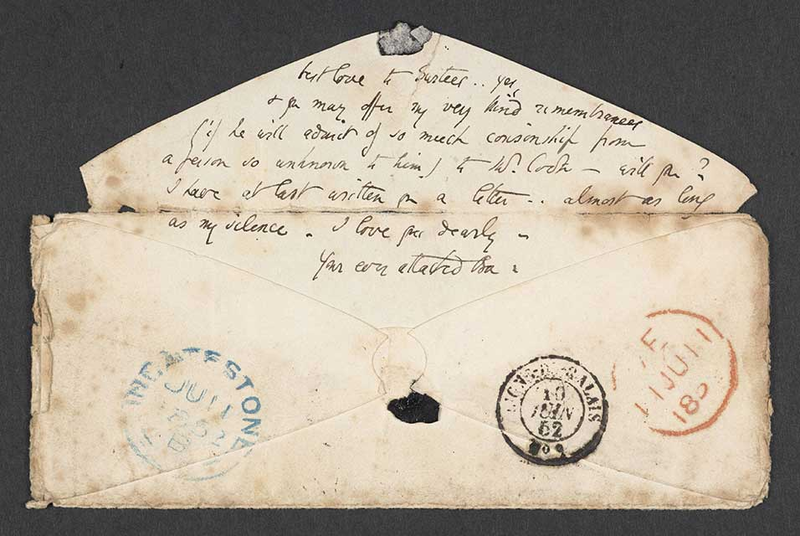 best love to Surtees .. yes,
& you may offer my very kind remembrances
(if he will admit of so much cousinship from
a person so unknown to him) to Mr. Cook – will you?
I have at last written you a letter .. almost as long
as my silence. I love you dearly –
Your ever attached Ba.
INGATESTONE
JU 11
1852
CALAIS
10
JUIN
52
11 JU 11
185